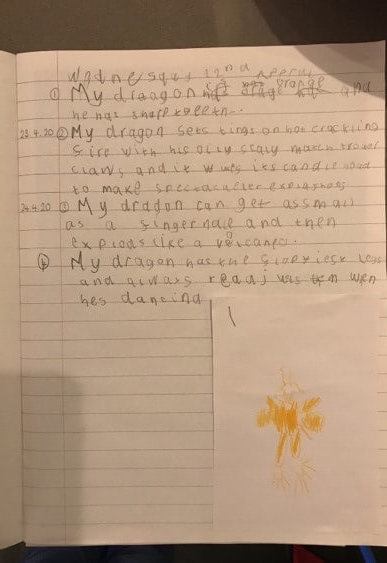 Wednesday 22nd Aperal
① My draagon has orange and
he has sharp teeth.
23.4.20 ② My dragon sets tings on hot crackling
fire with his oily scaly
claws, and it its candle
to make spectaculer explashons
24.4.20 ③ My dragon can get as small
as a fingernale and then
explods like a volcano.
④ My dragon has the legs
and always when
hes dancind